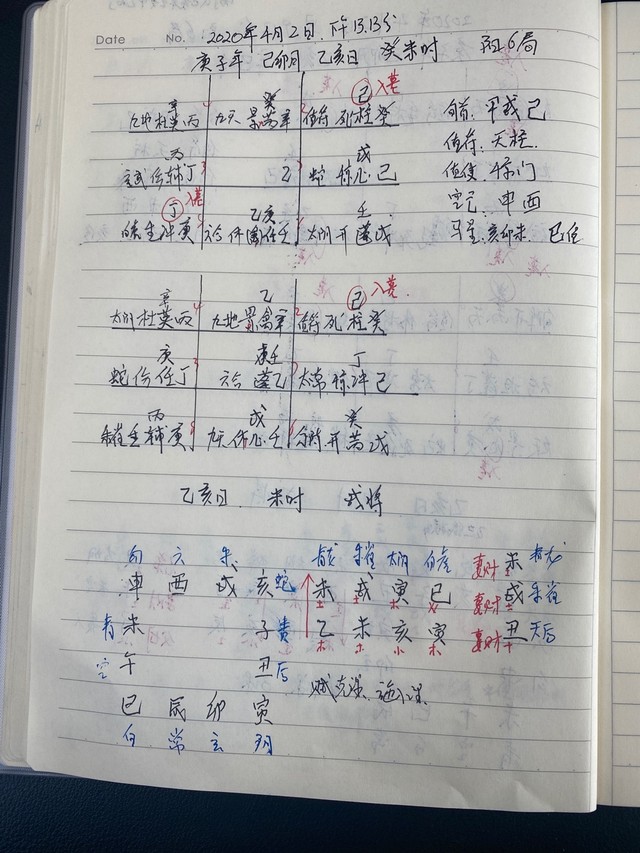 Date No. 2020年4月2日. 下午13.13分
庚子年 己卯月 乙亥日 癸未时 阳6局
辛 癸 己 入墓
九地杜英丙 九天景芮辛 值符死柱癸 旬首. 甲戌己
丙 戊 值符. 天柱
玄武伤辅丁 乙 蛇惊心己 值使. 惊门
丁 入墓 乙亥 壬 空亡. 申酉
生冲庚 六合休任壬 太阴开蓬戊 马星. 亥卯未. 巳位
辛 乙 己 入墓
太阴杜英丙 九地景禽辛 值符死柱癸
庚 壬 丁
蛇伤任丁 六合蓬乙 太常惊冲己
丙 戊 癸
朱雀生辅庚 九天休心壬 开芮戊
乙亥日. 未时 戌将
勾 六 朱 青龙 朱雀 太阴 白虎 未 青龙
申 酉 戌 亥 蛇 未 戌 寅 巳 妻财 土
土 土 木 火 妻财 戌 朱雀
青 未 子 贵 乙 未 亥 寅 妻财 丑 天后
木 土 水 木 土
空 午 丑 后
贼克课.
巳 辰 卯 寅
白 常 玄 阴